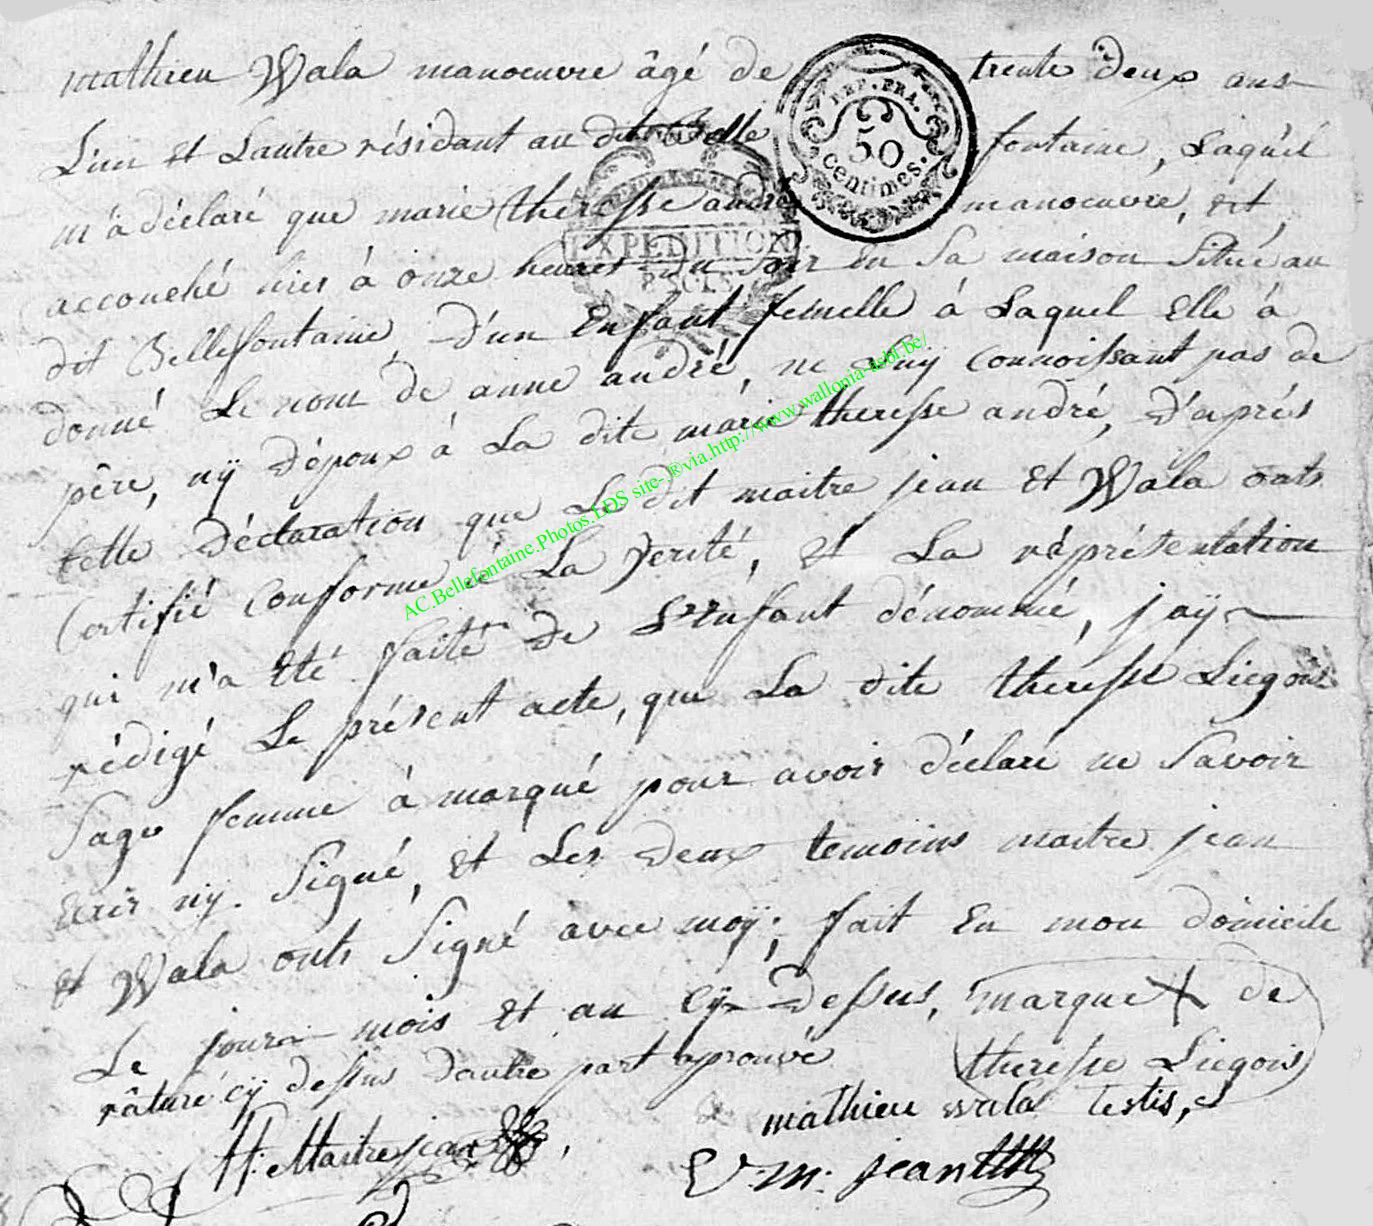 mathieu Wala manoeuvre âgé de trente deux ans
REP. FRA.
50
centimes.
L'un et Lautre résidant au dit Belle fontaine, Laquel
m'a déclaré que marie theresse andré manoeuvre, est
EXPEDITION
accouché hier à onze heures du soir En Sa maison Situé au
dit Bellefontaine, d'un Enfant femelle à Laquel Elle à
donné Le nom de anne andré, ne Luy connoissant pas de
père, nÿ d'époux à La dite marie theresse andré, D'après
Cette Déclaration que Le dit maitre jean et Wala onts
Certifié Conforme à La Verité, et La réprésentation
qui m'a Eté faite De L'Enfant dénommé, jaÿ
rédigé Le présent acte, que La dite theresse Liegois
Sage femme à marqué pour avoir déclaré ne Savoir
Ecrir nÿ Signé, et Les Deux temoins maitre jean
et Wala onts Signé avec moÿ; fait En mon domicile
Le jour mois et an cÿ Dessus, marque X de
theresse Liegois
râturé cÿ dessus dautre part aprouvé
mathieu wala testis,
H: Maitrejean
V. m. jean
AC.Bellefontaine.Photos.LDS site-.®via.http://www.wallonia-asbl.be/